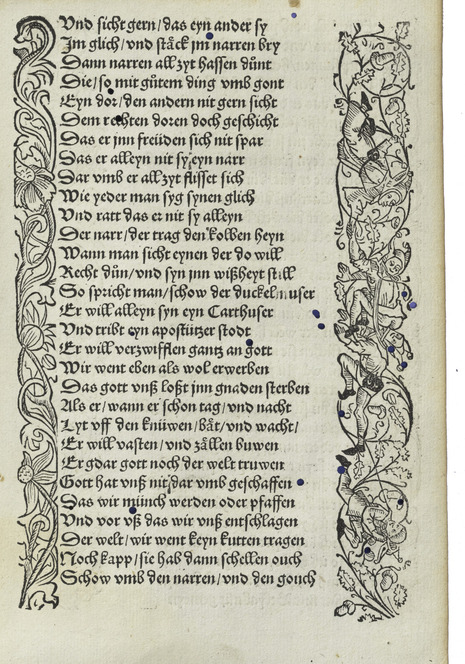 Vnd sicht gern/das eyn ander sy
Im glich/vnd stäck jm narren bry
Dann narren all zyt hassen důnt
Die/so mit gůtem ding vmb gont
Eyn dor/den andern nit gern sicht
Dem rechten doren doch geschicht
Das er jnn freüden sich nit spar
Das er alleyn nit sy/eyn narr
Dar vmb er all zyt flisset sich
Wie yeder man syg synen glich
Vnd ratt das er nit sy alleyn
Der narr/der trag den kolben heyn
Wann man sicht eynen der do will
Recht důn/vnd syn jnn wißheyt still
So spricht man/schow der duckelmuser
Er will alleyn syn eyn Carthuser
Vnd tribt eyn apostützer stodt
Er will verzwifflen gantz an gott
Wir went eben als wol erwerben
Das gott vnß loßt jnn gnaden sterben
Als er/wann er schon tag/vnd nacht
Lyt vff den knüwen/bät/vnd wacht/
Er will vasten/vnd zällen buwen
Er gdar gott noch der welt truwen
Gott hat vnß nit dar vmb geschaffen
Das wir münch werden oder pfaffen
Vnd vor vß das wir vnß entschlagen
Der welt/wir went keyn kutten tragen
Noch kapp/sie hab dann schellen ouch
Schow vmb den narren/vnd den gouch